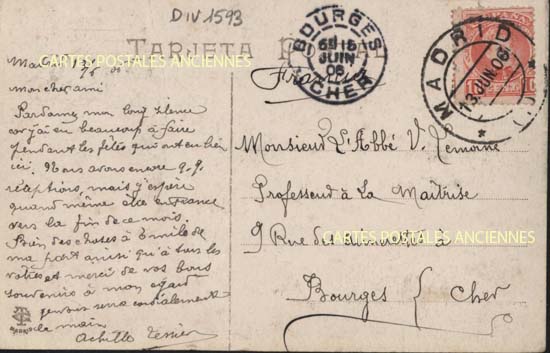 DIV 1593
TARJETA
BOURGES
15
JUIN
06
CHER
MADRID
13 JUN 06
15
(France)
mon cher ami
Pardonnez mon long silence
car j'ai eu beaucoup à faire
pendant les fêtes qui ont eu lieu
ici. Nous avons encore q.q.
réceptions, mais j'espère
quand même être en France
vers la fin de ce mois.
Bien des choses à Emile de
ma part ainsi qu'à tous les
vôtres et merci de vos bons
souvenirs à mon égard
serre cordialement
la main
Achille Tessier
Monsieur l'Abbé V. Lemoine
Professeur à La Maîtrise
9 Rue des à
Bourges { Cher
CARTES POSTALES ANCIENNES
CARTES POSTALES ANCIENNES